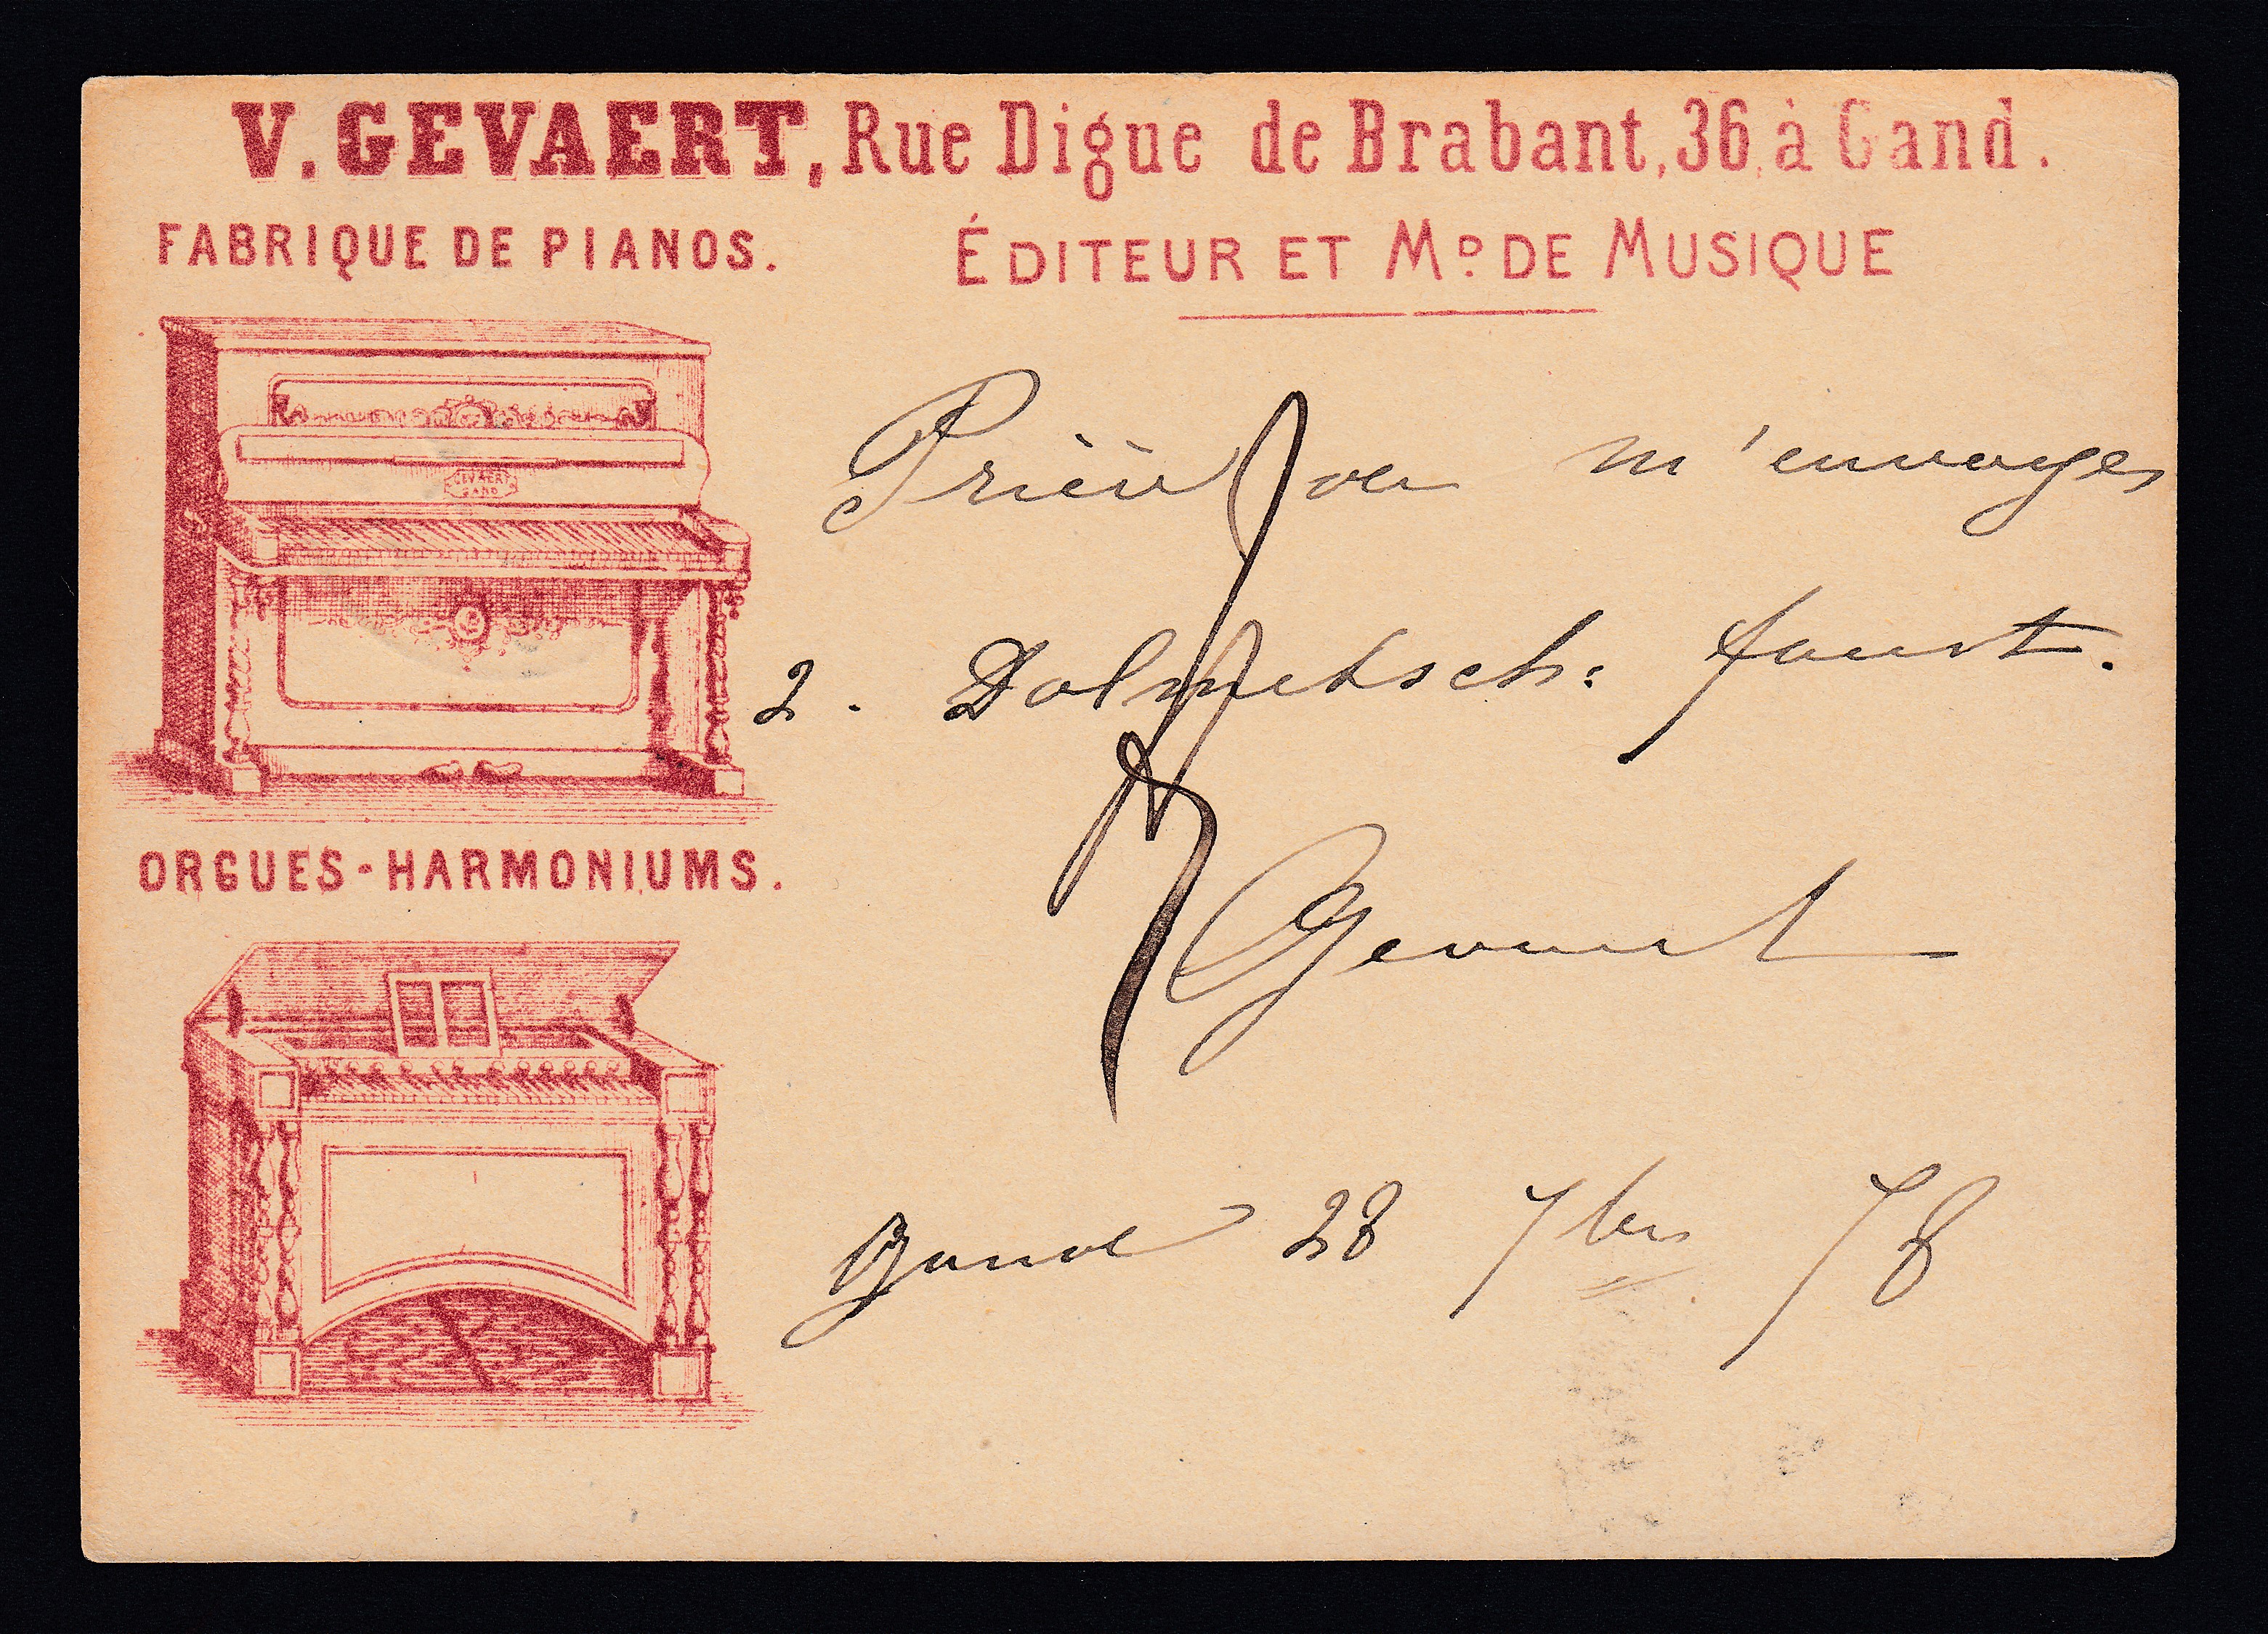 V. GEVAERT, Rue Digue de Brabant, 36, à Gand.
FABRIQUE DE PIANOS.
ÉDITEUR ET Mᴰ DE MUSIQUE
GEVAERT
GAND
Prière de m'envoyer
2. Dolmetsch: faust.
Gevaert
ORGUES-HARMONIUMS.
Gand 28 7bre 78